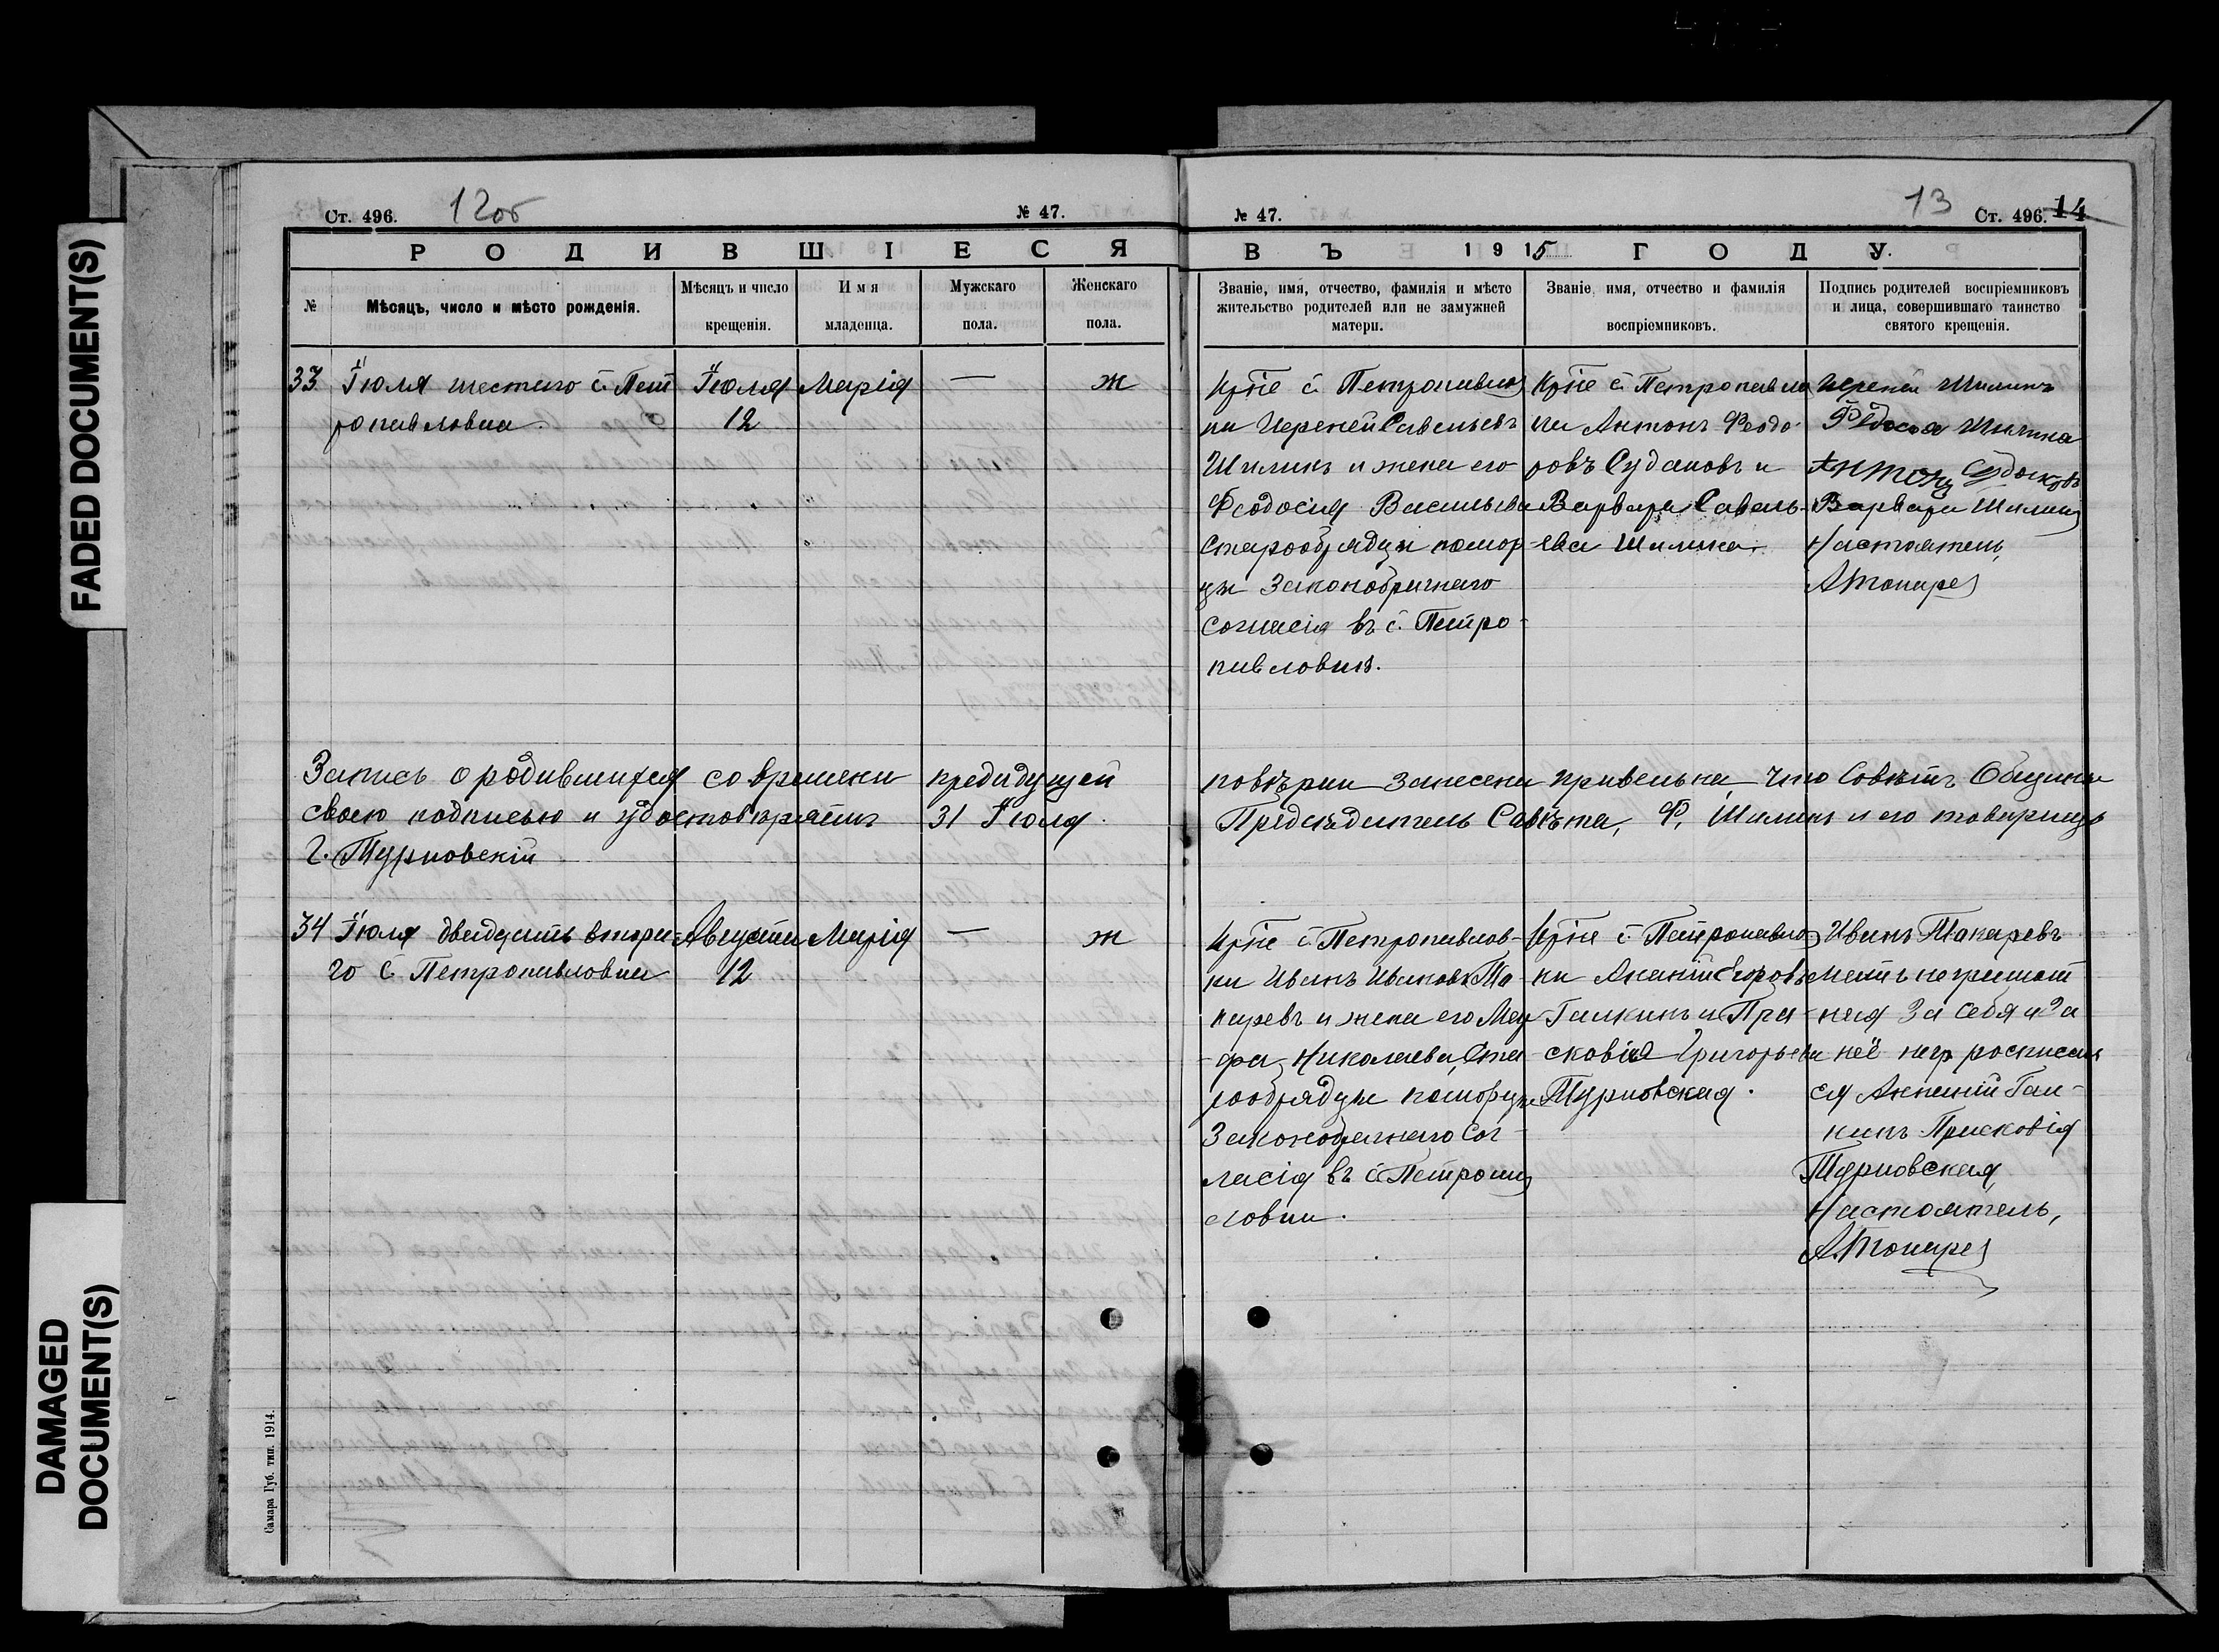 FADED DOCUMENT(S)
DAMAGED
DOCUMENT(S)
Ст. 496.
12об
№ 47.
РОДИВШІЕСЯ
№
Мѣсяцъ, число и мѣсто рожденія.
Мѣсяцъ и число
крещенія.
Имя
младенца.
Мужскаго
пола.
Женскаго
пола.
33 Іюля шестаго с. Пет
ропавловка
Іюля
12
Марія
—
ж
Запись о родившихся со времени предидущей
своею подписью и удостовѣряетъ 31 Іюля.
Г. Турновскій
34 Іюля двадцать втора-
го с. Петропавловка
Августа
12
Марія
—
ж
Самара Губ. тип. 1914.
№ 47.
13
Ст. 496.
14
ВЪ 1915 ГОДУ.
Званіе, имя, отчество, фамилія и мѣсто
жительство родителей или не замужней
матери.
Званіе, имя, отчество и фамилія
воспріемниковъ.
Подпись родителей воспріемниковъ
и лица, совершившаго таинство
святого крещенія.
Кр҃не с. Петропавлов
ки Иереней Савельевъ
Шилинъ и жена его
Феодосия Васильева
Старообрядцы помор-
цы Законобрачнаго
согласія въ с. Петро-
павловки.
Кр҃не с. Петропавлов
ки Антонъ Феодо-
ровъ Судаковъ и
Варвара Савель-
ева Шилина.
Иереней Шилинъ
Федосья Шилина
Антонъ Судаковъ
Варвара Шилина
Настоятель,
А Токарев
повѣрки занесена правельна, что Совѣтъ Общины
Предсѣдатель Совѣта, Ф. Шилинъ и его товарищъ
Кр҃не с. Петропавлов-
ки Иванъ Ивановъ То-
каревъ и жена его Мар-
фа Николаева, Ста-
рообрядцы поморцы
Законобрачнаго Сог-
ласія въ с. Петропав
ловки.
Кр҃не с. Петропавлов
ки Ананій Егоровъ
Галкинъ и Пра-
сковія Григорьева
Турновская.
Иванъ Токаревъ
Мать неграмот
ная За себя и За
неё
росписал
ся Ананій Гал-
кинъ Прасковія
Турновская
Настоятель,
А. Токарев